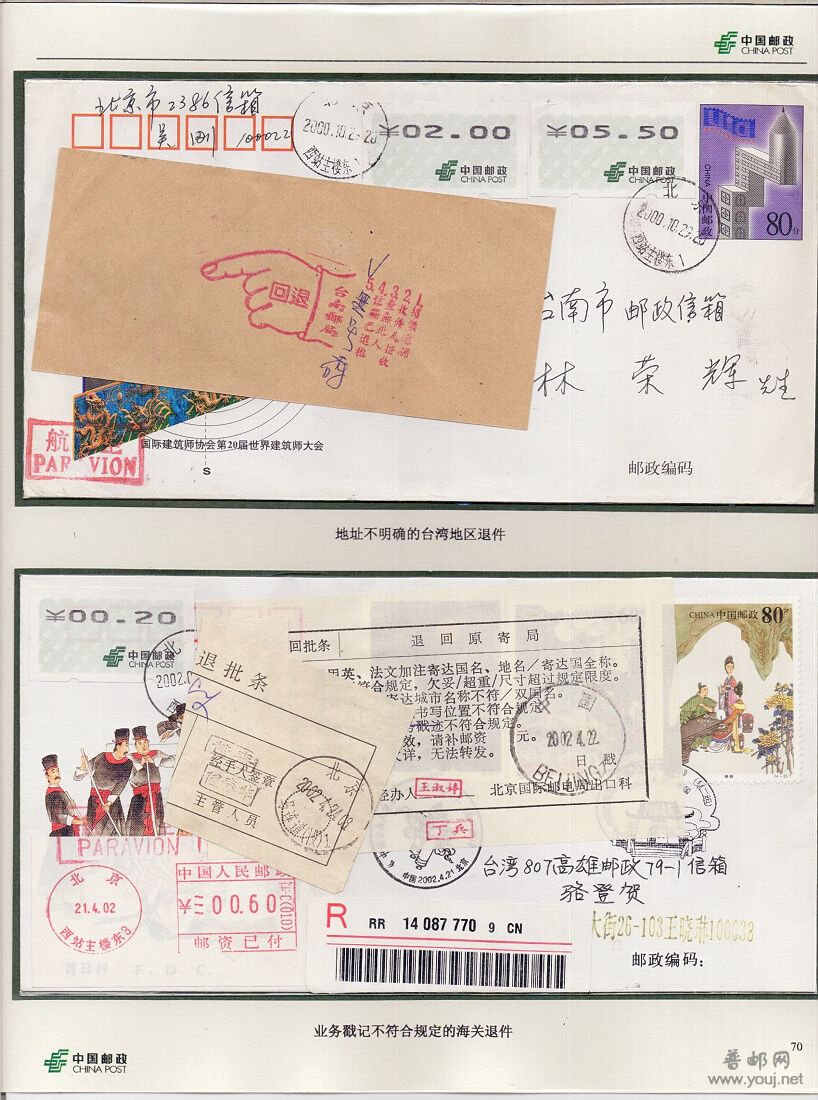 中国邮政
CHINA POST
北京市2386信箱
吴 刚 100022
北 京
2000.10.23.20
西站主楼东1
¥02.00
中国邮政
CHINA POST
¥05.50
中国邮政
CHINA POST
CHINA
中国邮政
80分
北 京
2000.10.23.20
西站主楼东1
退回
台南郵局
5.4.3.2.1.
台南市 邮政信箱
林 荣 辉 先生
航
PAR VION
国际建筑师协会第20届世界建筑师大会
S
邮政编码
地址不明确的台湾地区退件
¥00.20
中国邮政
CHINA POST
北
2002.0
退批条
经手人签章
主管人员
北 京
回批条 退回原寄局
用英、法文加注寄达国名、地名/寄达国全称。
符合规定,欠妥/超重/尺寸超过规定限度。
寄达城市名称不符/双国名。
书写位置不符合规定
号戳迹不符合规定。
效,请补邮资 元。
详,无法转发。
日 戳
中 国
2002.4.22
BEIJING
经办人 王淑婷 北京国际邮电局出口科
丁兵
CHINA 中国邮政 80分
PARAVION
北 京
21.4.02
西站主楼东3
中国人民邮政
¥ 00.60
邮资已付
(C010)
首日封 F.D.C.
中国2002.4.21北京
台湾807高雄邮政79-1信箱
骆登贺
R RR 14 087 770 9 CN
大街26-103王晓琳100038
邮政编码:
业务戳记不符合规定的海关退件
中国邮政
CHINA POST
70
普邮网
www.youj.net